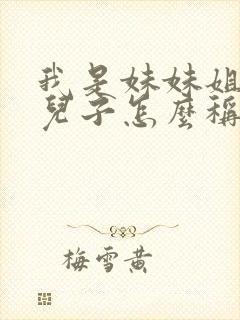 我是妹妹姐
兒子怎麼稱
梅雪黄